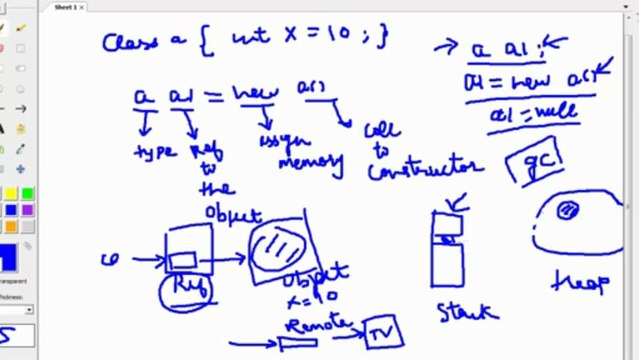 Sheet 1
Class a { int x = 10 ; }
a a1 ;
a1 = new a()
a1 = null
a a1 = new a()
type
Ref to the object
assign memory
call to constructor
gc
Ref
object
x = 10
Remote
TV
Stack
Heap
Thickness: